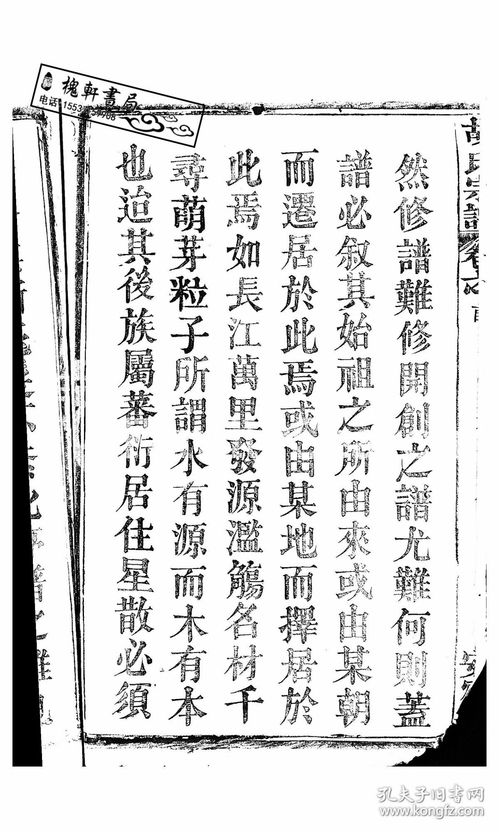 槐軒書局
然修譜難修開創之譜尤難何則蓋
譜必叙其始祖之所由來或由某朝
而遷居於此焉或由某地而擇居於
此焉如長江萬里發源濫觴名材千
尋萌芽粒子所謂水有源而木有本
也迨其後族屬蕃衍居住星散必須
孔夫子旧书网
kongfz.com